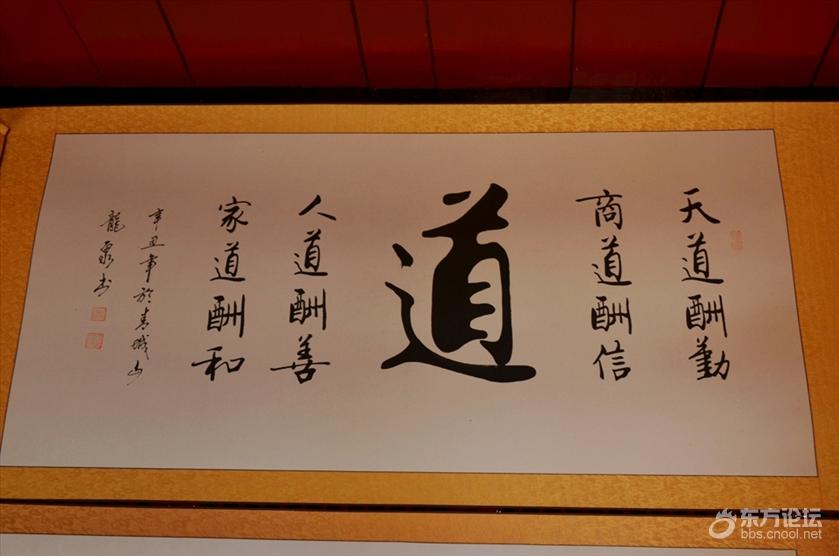 天道酬勤
商道酬信
道
人道酬善
家道酬和
辛丑年於青城山
龍泉书
东方论坛
bbs.cnool.net